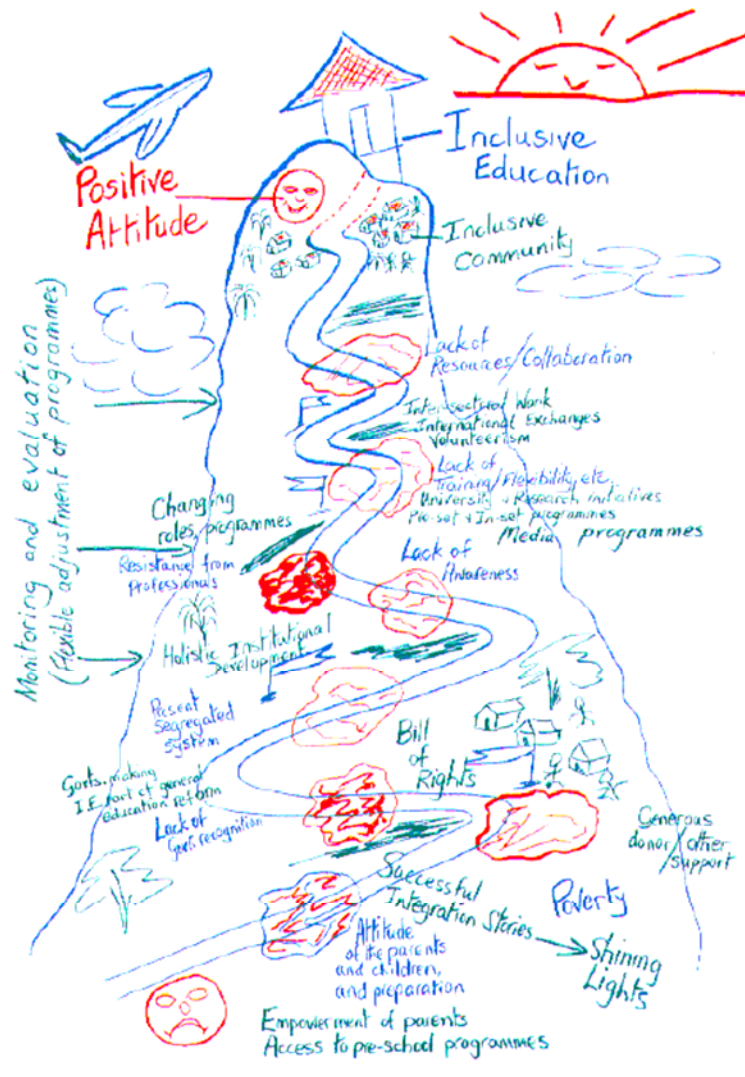 Inclusive
Education
Positive
Attitude
Inclusive
Community
Monitoring and evaluation
(Flexible adjustment of programmes)
Lack of
Resources/Collaboration
Inter-sectoral Work
International Exchanges
Volunteerism
Lack of
Training/Flexibility, etc.
University + Research initiatives
Pre-set + In-set programmes
Media programmes
Changing
roles, programmes
Resistance from
Professionals
Lack of
Awareness
Holistic Institutional
Development
Present
Segregated
system
Bill
of
Rights
Govts. making
I.E. part of general
education reform
Lack of
Govts recognition
Generous
donor/other
support
Successful
Integration Stories
Poverty
Shining
Lights
Attitude
of the parents
and children,
and preparation
Empowerment of parents
Access to pre-school programmes